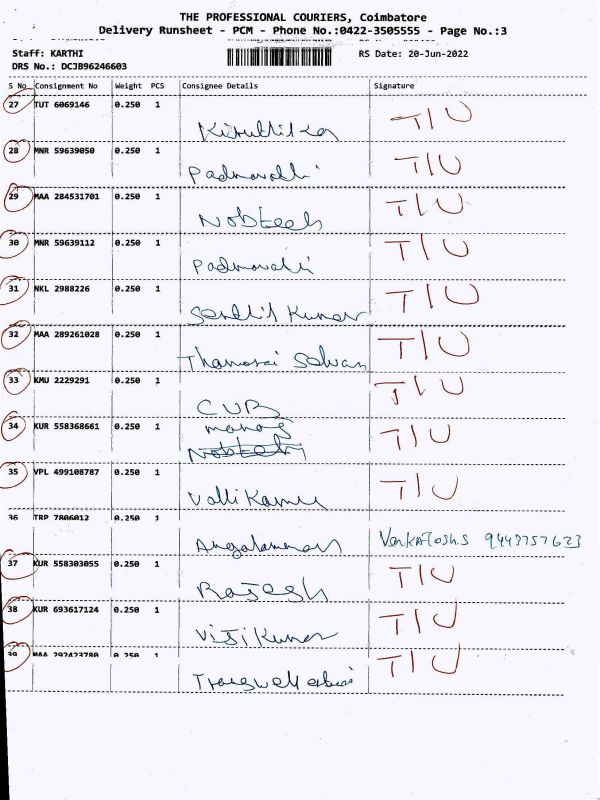 THE PROFESSIONAL COURIERS, Coimbatore
Delivery Runsheet - PCM - Phone No.:0422-3505555 - Page No.:3
Staff: KARTHI RS Date: 20-Jun-2022
DRS No.: DCJB96246603
S No Consignment No Weight PCS Consignee Details Signature
27 TUT 6069146 0.250 1 T/U
Kiruthika
28 MNR 59639050 0.250 1 T/U
Padmavathi
29 MAA 284531701 0.250 1 T/U
Nobtech
30 MNR 59639112 0.250 1 T/U
Padmavathi
31 NKL 2988226 0.250 1 T/U
Senthil Kumar
32 MAA 289261028 0.250 1 T/U
Thamarai Selvan
33 KMU 2229291 0.250 1 T/U
CUB
34 KUR 558368661 0.250 1 manog T/U
Nobtech
35 VPL 499108787 0.250 1 T/U
Valli Kannu
36 TRP 7806012 0.250 1
Angalamman Venkatesh.S 9443757623
37 KUR 558303055 0.250 1 T/U
Rajesh
38 KUR 693617124 0.250 1 T/U
Viji Kumar
39 MAA 292423780 0.250 1 T/U